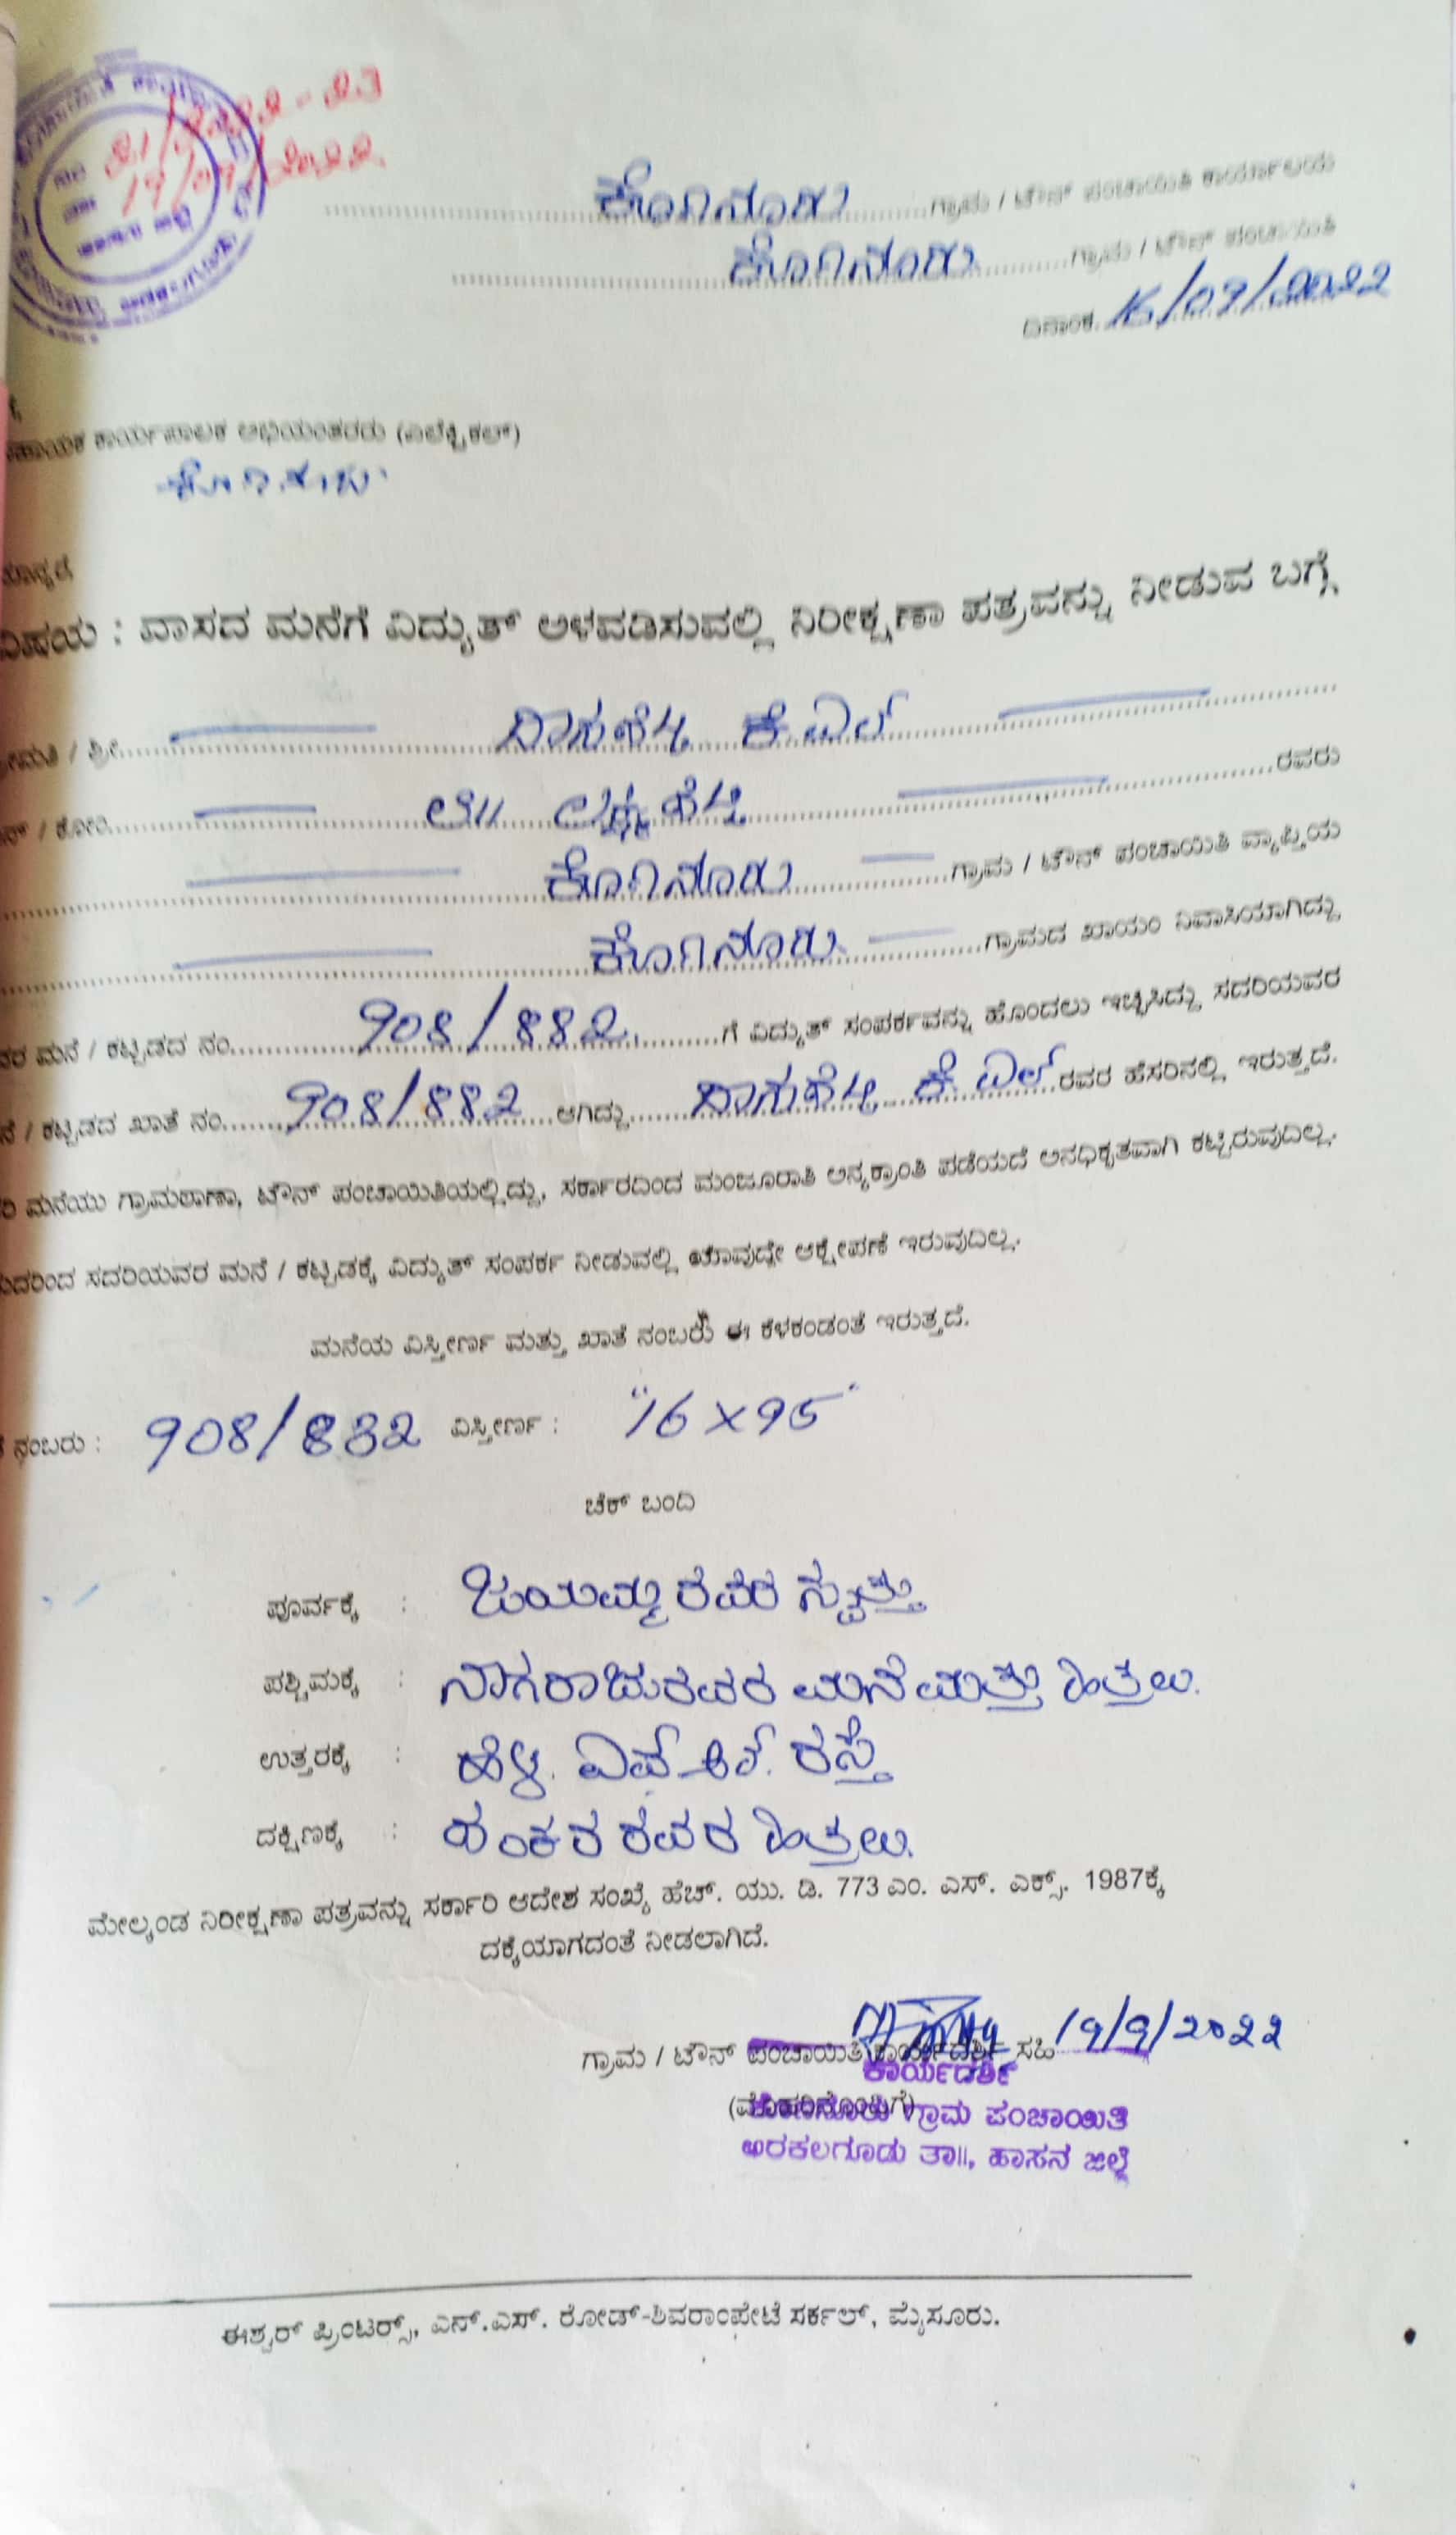 21/2022-23
19/09/2022
ಕೊಣನೂರು ಗ್ರಾಮ / ಟೌನ್ ಪಂಚಾಯಿತಿ ಕಾರ್ಯಾಲಯ
ಕೊಣನೂರು ಗ್ರಾಮ / ಟೌನ್ ಪಂಚಾಯಿತಿ
ದಿನಾಂಕ 16/09/2022
ಸಹಾಯಕ ಕಾರ್ಯಪಾಲಕ ಅಭಿಯಂತರರು (ಎಲೆಕ್ಟ್ರಿಕಲ್)
ಕೊಣನೂರು
ಮಾನ್ಯರೆ
ವಿಷಯ : ವಾಸದ ಮನೆಗೆ ವಿದ್ಯುತ್ ಅಳವಡಿಸುವಲ್ಲಿ ನಿರೀಕ್ಷಣಾ ಪತ್ರವನ್ನು ನೀಡುವ ಬಗ್ಗೆ
ಶ್ರೀಮತಿ / ಶ್ರೀ ಕೆ ಎಲ್
ಕೋಂ ರವರು
ಕೊಣನೂರು ಗ್ರಾಮ / ಟೌನ್ ಪಂಚಾಯಿತಿ ವ್ಯಾಪ್ತಿಯ
ಕೊಣನೂರು ಗ್ರಾಮದ ಖಾಯಂ ನಿವಾಸಿಯಾಗಿದ್ದು
ಮನೆ / ಕಟ್ಟಡದ ನಂ 908/882 ಗೆ ವಿದ್ಯುತ್ ಸಂಪರ್ಕವನ್ನು ಹೊಂದಲು ಇಚ್ಛಿಸಿದ್ದು ಸದರಿಯವರ
ಮನೆ / ಕಟ್ಟಡದ ಖಾತೆ ನಂ 908/882 ಆಗಿದ್ದು ಕೆ ಎಲ್ ರವರ ಹೆಸರಿನಲ್ಲಿ ಇರುತ್ತದೆ.
ಮನೆಯು ಗ್ರಾಮಠಾಣಾ, ಟೌನ್ ಪಂಚಾಯಿತಿಯಲ್ಲಿದ್ದು, ಸರ್ಕಾರದಿಂದ ಮಂಜೂರಾತಿ ಅನ್ಯಕ್ರಾಂತಿ ಪಡೆಯದೆ ಅನಧಿಕೃತವಾಗಿ ಕಟ್ಟಿರುವುದಿಲ್ಲ.
ಸದರಿಯವರ ಮನೆ / ಕಟ್ಟಡಕ್ಕೆ ವಿದ್ಯುತ್ ಸಂಪರ್ಕ ನೀಡುವಲ್ಲಿ ಯಾವುದೇ ಆಕ್ಷೇಪಣೆ ಇರುವುದಿಲ್ಲ.
ಮನೆಯ ವಿಸ್ತೀರ್ಣ ಮತ್ತು ಖಾತೆ ನಂಬರು ಈ ಕೆಳಕಂಡಂತೆ ಇರುತ್ತದೆ.
ನಂಬರು : 908/882 ವಿಸ್ತೀರ್ಣ : "16×95"
ಚೆಕ್ ಬಂದಿ
ಪೂರ್ವಕ್ಕೆ : ಜಯಮ್ಮ ರವರ ಸ್ವತ್ತು
ಪಶ್ಚಿಮಕ್ಕೆ : ನಾಗರಾಜುರವರ ಮನೆ ಮತ್ತು ಹಿತ್ತಲು.
ಉತ್ತರಕ್ಕೆ : ರಸ್ತೆ
ದಕ್ಷಿಣಕ್ಕೆ : ಶಂಕರ ರವರ ಹಿತ್ತಲು.
ಮೇಲ್ಕಂಡ ನಿರೀಕ್ಷಣಾ ಪತ್ರವನ್ನು ಸರ್ಕಾರಿ ಆದೇಶ ಸಂಖ್ಯೆ ಹೆಚ್. ಯು. ಡಿ. 773 ಎಂ. ಎಸ್. ಎಕ್ಸ್. 1987ಕ್ಕೆ
ದಕ್ಕೆಯಾಗದಂತೆ ನೀಡಲಾಗಿದೆ.
ಗ್ರಾಮ / ಟೌನ್ ಪಂಚಾಯಿತಿ ಕಾರ್ಯದರ್ಶಿ ಸಹಿ 19/9/2022
ಕಾರ್ಯದರ್ಶಿ
(ಮೊಹರಿನೊಂದಿಗೆ)
ಕೊಣನೂರು ಗ್ರಾಮ ಪಂಚಾಯಿತಿ
ಅರಕಲಗೂಡು ತಾ॥, ಹಾಸನ ಜಿಲ್ಲೆ
ಈಶ್ವರ್ ಪ್ರಿಂಟರ್ಸ್, ಎನ್.ಎಸ್. ರೋಡ್-ಶಿವರಾಂಪೇಟೆ ಸರ್ಕಲ್, ಮೈಸೂರು.